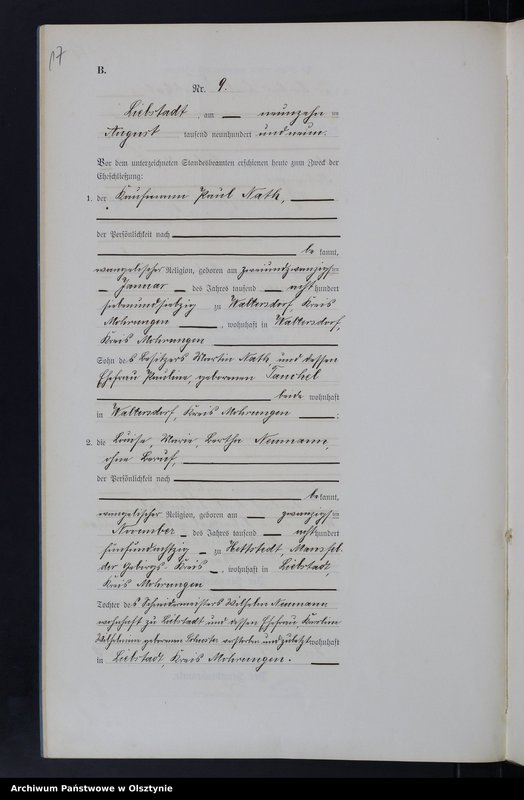 17
B.
Nr. 9.
Liebstadt, am neunzehn ten
August tausend neunhundert und neun.
Vor dem unterzeichneten Standesbeamten erschienen heute zum Zweck der
Eheschließung:
1. der Kaufmann Paul Nath,
der Persönlichkeit nach
be kannt,
evangelischer Religion, geboren am zweiundzwanzigsten
Januar des Jahres tausend acht hundert
siebenundsiebzig zu Waltersdorf, Kreis
Mohrungen, wohnhaft in Waltersdorf,
Kreis Mohrungen
Sohn des Besitzers Martin Nath, und dessen
Ehefrau Pauline, geborenen
beide wohnhaft
in Waltersdorf, Kreis Mohrungen ;
2. die Louise, Marie, Bertha Neumann,
ohne Beruf,
der Persönlichkeit nach
be kannt,
evangelischer Religion, geboren am zwanzigsten
November des Jahres tausend acht hundert
fünfundachtzig zu Hettstedt, Mansfel-
der Gebirgs-Kreis, wohnhaft in Liebstadt,
Kreis Mohrungen
Tochter des Schneidermeisters Wilhelm Neumann
wohnhaft zu Liebstadt und dessen Ehefrau Karline
Wilhelmine geborenen verstorben und zuletzt wohnhaft
in Liebstadt, Kreis Mohrungen.
Archiwum Państwowe w Olsztynie